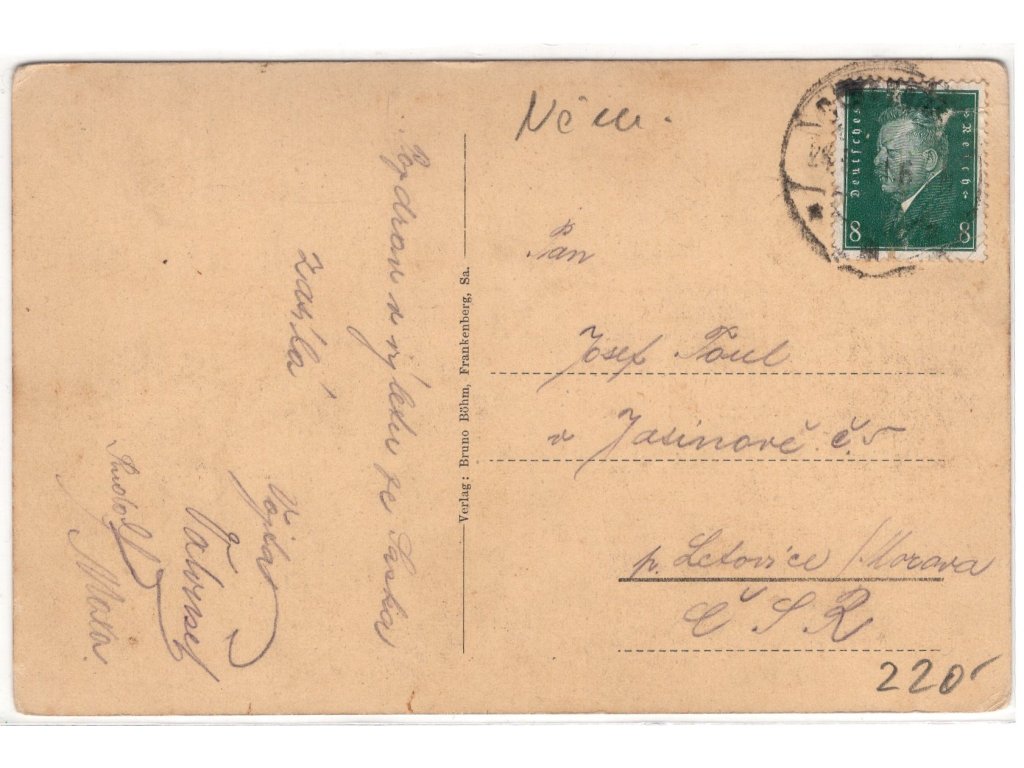 Něm.
Pozdrav z výletu ze Saska
zasílá
Vojta
Rudolf
Verlag: Bruno Böhm, Frankenberg, Sa.
Deutsches Reich
8 8
Pan
Josef Poul
v Jasinově č. 5
p. Letovice / Morava
ČSR
220